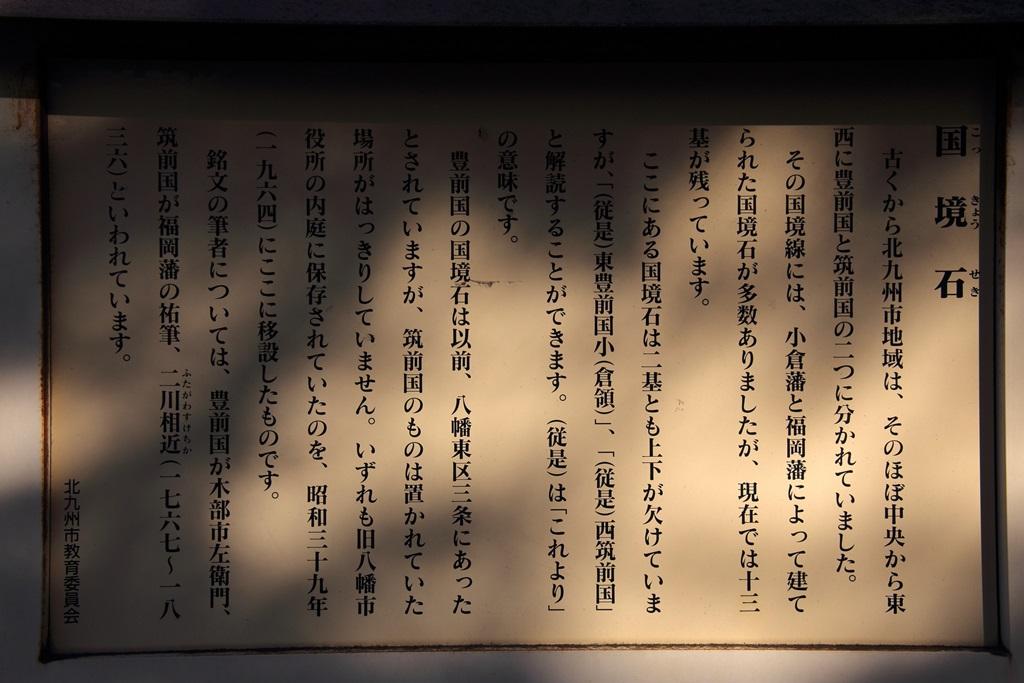 国境石
こっ きょう せき
古くから北九州市地域は、そのほぼ中央から東
西に豊前国と筑前国の二つに分かれていました。
その国境線には、小倉藩と福岡藩によって建て
られた国境石が多数ありましたが、現在では十三
基が残っています。
ここにある国境石は二基とも上下が欠けていま
すが、「(従是)東豊前国小(倉領)」、「(従是)西筑前国」
と解読することができます。(従是)は「これより」
の意味です。
豊前国の国境石は以前、八幡東区三条にあった
とされていますが、筑前国のものは置かれていた
場所がはっきりしていません。いずれも旧八幡市
役所の内庭に保存されていたのを、昭和三十九年
(一九六四)にここに移設したものです。
銘文の筆者については、豊前国が木部市左衛門、
筑前国が福岡藩の祐筆、二川相近(一七六七〜一八
ふたがわすけちか
三六)といわれています。
北九州市教育委員会